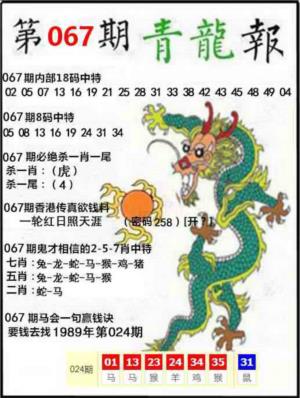 第067期青龍報
067期内部18码中特
02 05 07 13 16 18 19 21 25 28 31 32 33 38 44 48 47 49
067期8码中特
05 08 13 16 19 24 31 34
067期必绝杀一肖一尾
杀一肖：（虎）
杀一尾：（4）
067期香港传真欲钱料
一轮红日照天涯 （密码258）[开？]
067期鬼才相信的2-5-7肖中特
七肖：兔-龙-蛇-马-猴-鸡-猪
五肖：兔-龙-蛇-马-猴
二肖：蛇-马
067期马会一句赢钱诀
要钱去找1989年第024期
024期 01 13 23 24 34 35 31
马 马 猴 羊 鸡 猴 鼠